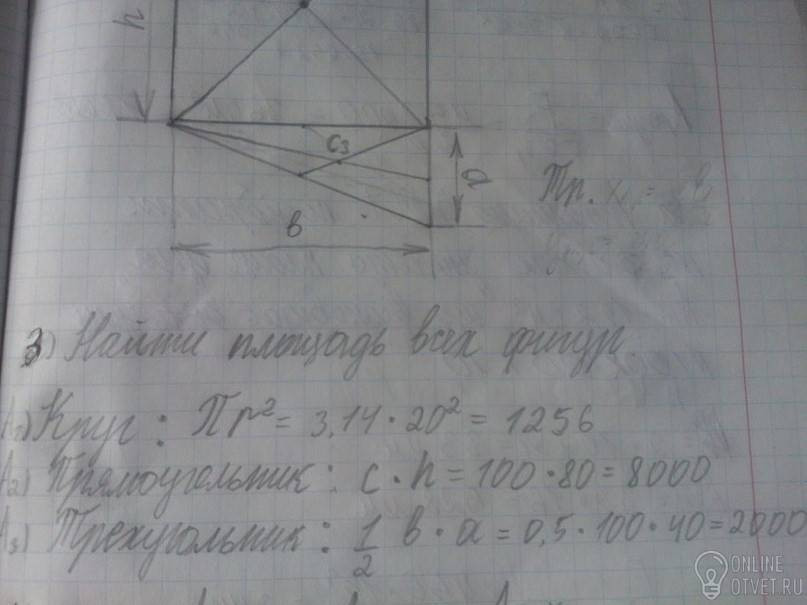 h
C₃
a
Тр.
в
3) Найти площадь всех фигур.
A₁) Круг : Пr² = 3,14 · 20² = 1256
A₂) Прямоугольник : c · h = 100 · 80 = 8000
A₃) Трехугольник : 1/2 в · a = 0,5 · 100 · 40 = 2000
ONLINE
OTVET.RU